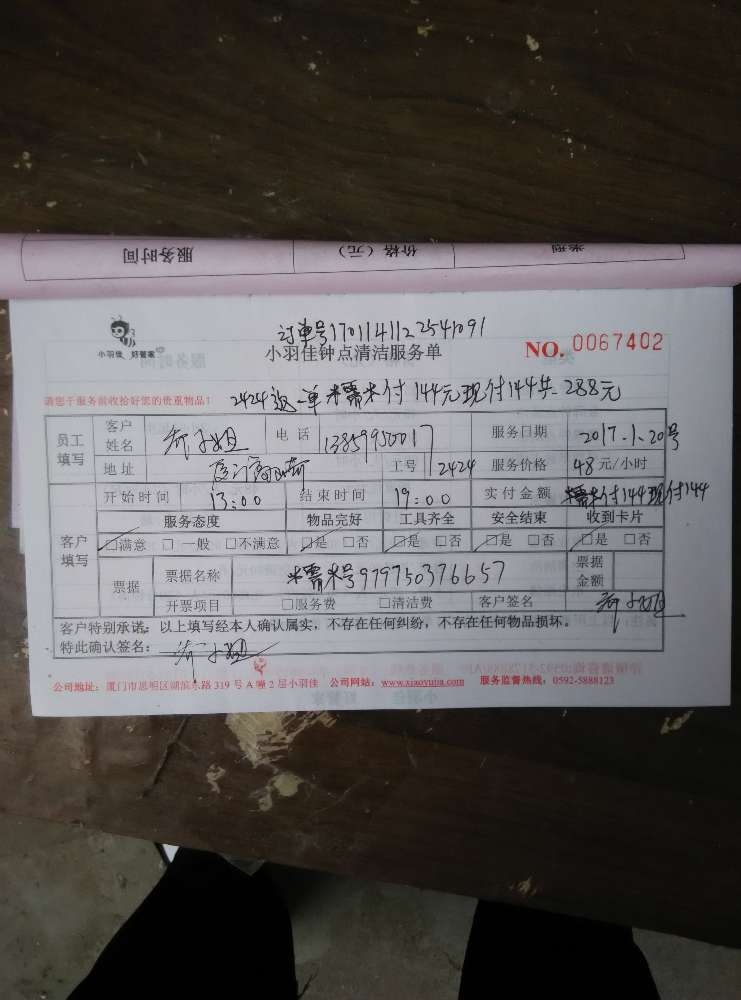 服务时间 价格（元） 类型
小羽佳 好管家
订单号1701141122541091
小羽佳钟点清洁服务单
NO. 0067402
请您于服务前收拾好您的贵重物品！
2424返一单糯米付144元现付144共288元
员工填写 客户姓名 小姐 电话 13859950017 服务日期 2017.1.20号
地址 工号 2424 服务价格 48元/小时
开始时间 13:00 结束时间 19:00 实付金额 糯米付144现付144
客户填写 服务态度 物品完好 工具齐全 安全结束 收到卡片
□满意 □一般 □不满意 □是 □否 □是 □否 □是 □否 □是 □否
票据 票据名称 糯米号979750376657 票据金额
开票项目 □服务费 □清洁费 客户签名 小姐
客户特别承诺：以上填写经本人确认属实，不存在任何纠纷，不存在任何物品损坏。
特此确认签名： 小姐
公司地址：厦门市思明区湖滨东路319号A幢2层小羽佳 公司网站：www.xiaoyujia.com 服务监督热线：0592-5888123